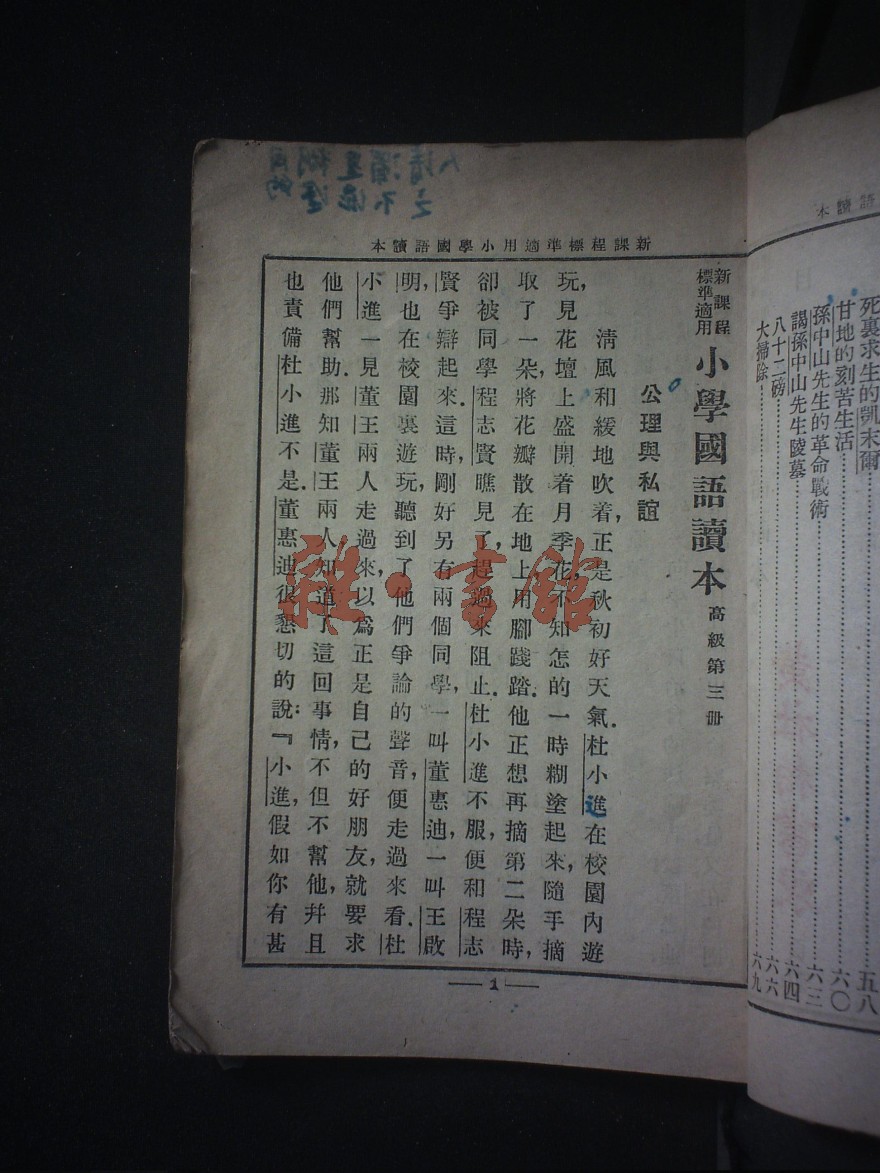 語讀本
死裏求生的凱末爾……五八
甘地的刻苦生活……六〇
孫中山先生的革命戰術……六三
謁孫中山先生陵墓……六四
八十二磅……六六
大掃除……六九
新課程標準適用小學國語讀本
新課程標準適用
小學國語讀本 高級第三冊
公理與私誼
清風和緩地吹着,正是秋初好天氣.杜小進在校園內遊
玩,見花壇上盛開着月季花,不知怎的一時糊塗起來,隨手摘
取了一朵,將花瓣散在地上用腳踐踏.他正想再摘第二朵時,
卻被同學程志賢瞧見了,趕過來阻止.杜小進不服,便和程志
賢爭辯起來.這時,剛好另有兩個同學,一叫董惠迪,一叫王啟
明,也在校園裏遊玩,聽到了他們爭論的聲音,便走過來看.杜
小進一見董王兩人走過來,以爲正是自己的好朋友,就要求
他們幫助.那知董王兩人知道了這回事情,不但不幫他,幷且
也責備杜小進不是.董惠迪很懇切的說:『小進,假如你有甚
1
雜·書館